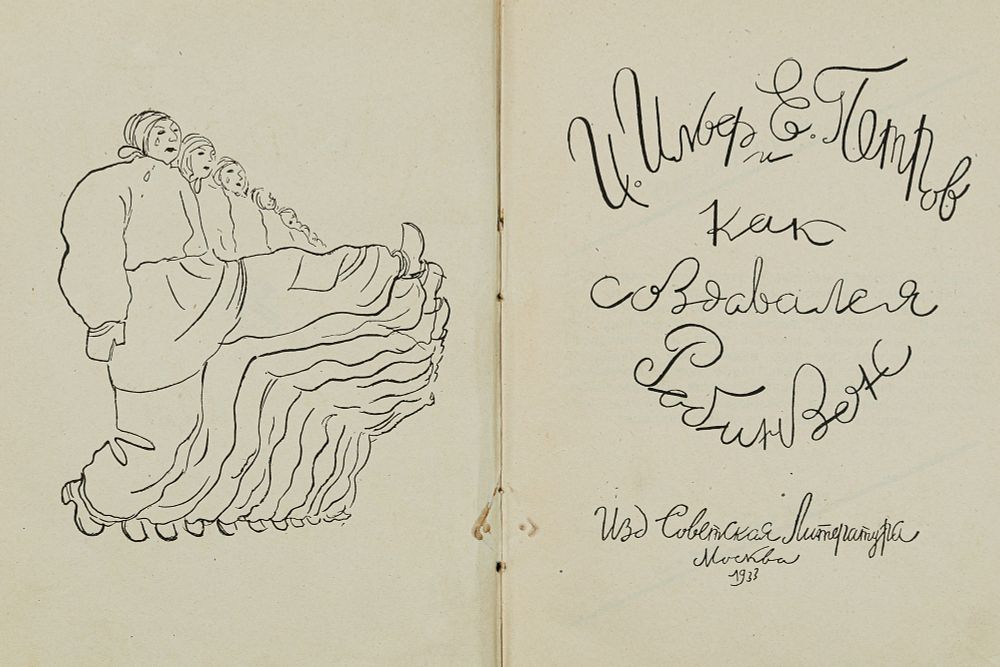 И. Ильф и Е. Петров
как
создавался
Робинзон
Изд Советская Литература
Москва
1933